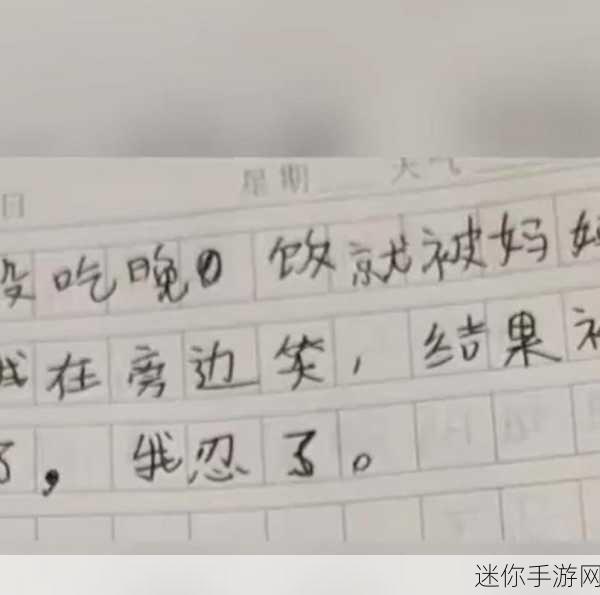 日 星期 天气
没吃晚饭就被妈妈
我在旁边笑，结果被
了，我忍了。
迷你手游网